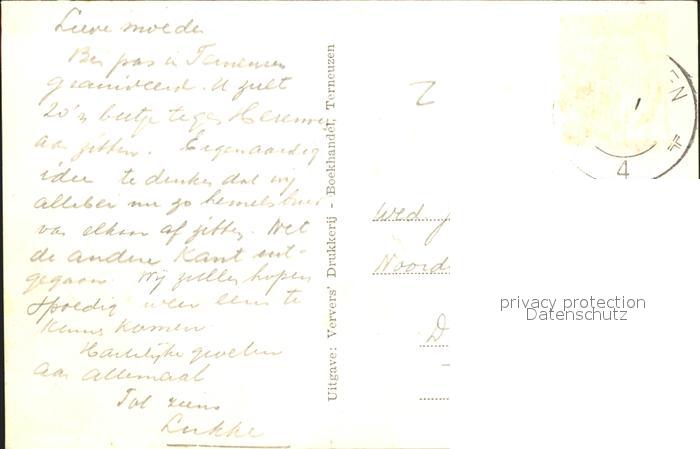 Lieve moeder
Ben pas in Terneuzen
gearriveerd. U ziet
zo'n beetje tegen
aan zitten. Eigenaardig
idee te denken dat wij
allebei nu zo hemelsbreed
van elkaar af zitten. Net
de andere Kant uit-
gegaan. Wij zullen hopen
spoedig weer eens te
komen
Hartelijke groeten
aan allemaal
Tot ziens
Lukke
Uitgave: Ververs' Drukkerij - Boekhandel, Terneuzen
2
N
4
Wed. J
Noord
D
privacy protection
Datenschutz